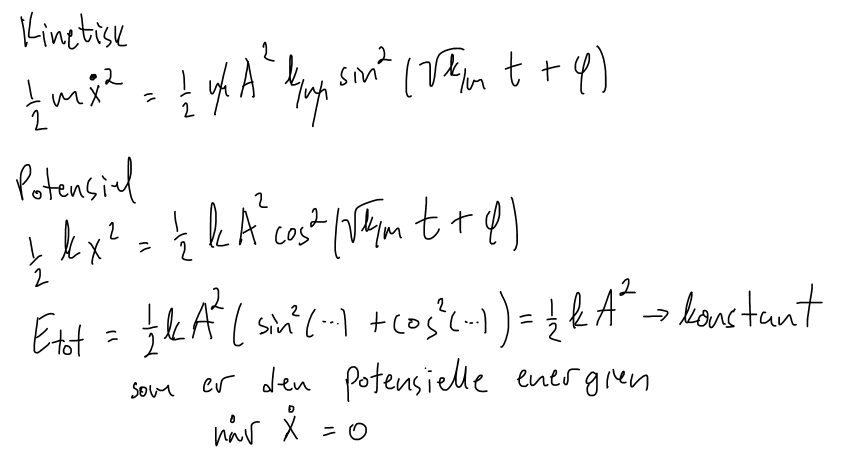 Kinetisk
½ m ẋ² = ½ m A² k/m sin² (√k/m t + φ)
Potensiel
½ k x² = ½ k A² cos² (√k/m t + φ)
E_tot = ½ k A² ( sin² (...) + cos² (...) ) = ½ k A² → konstant
som er den potensielle energien
når ẋ = 0